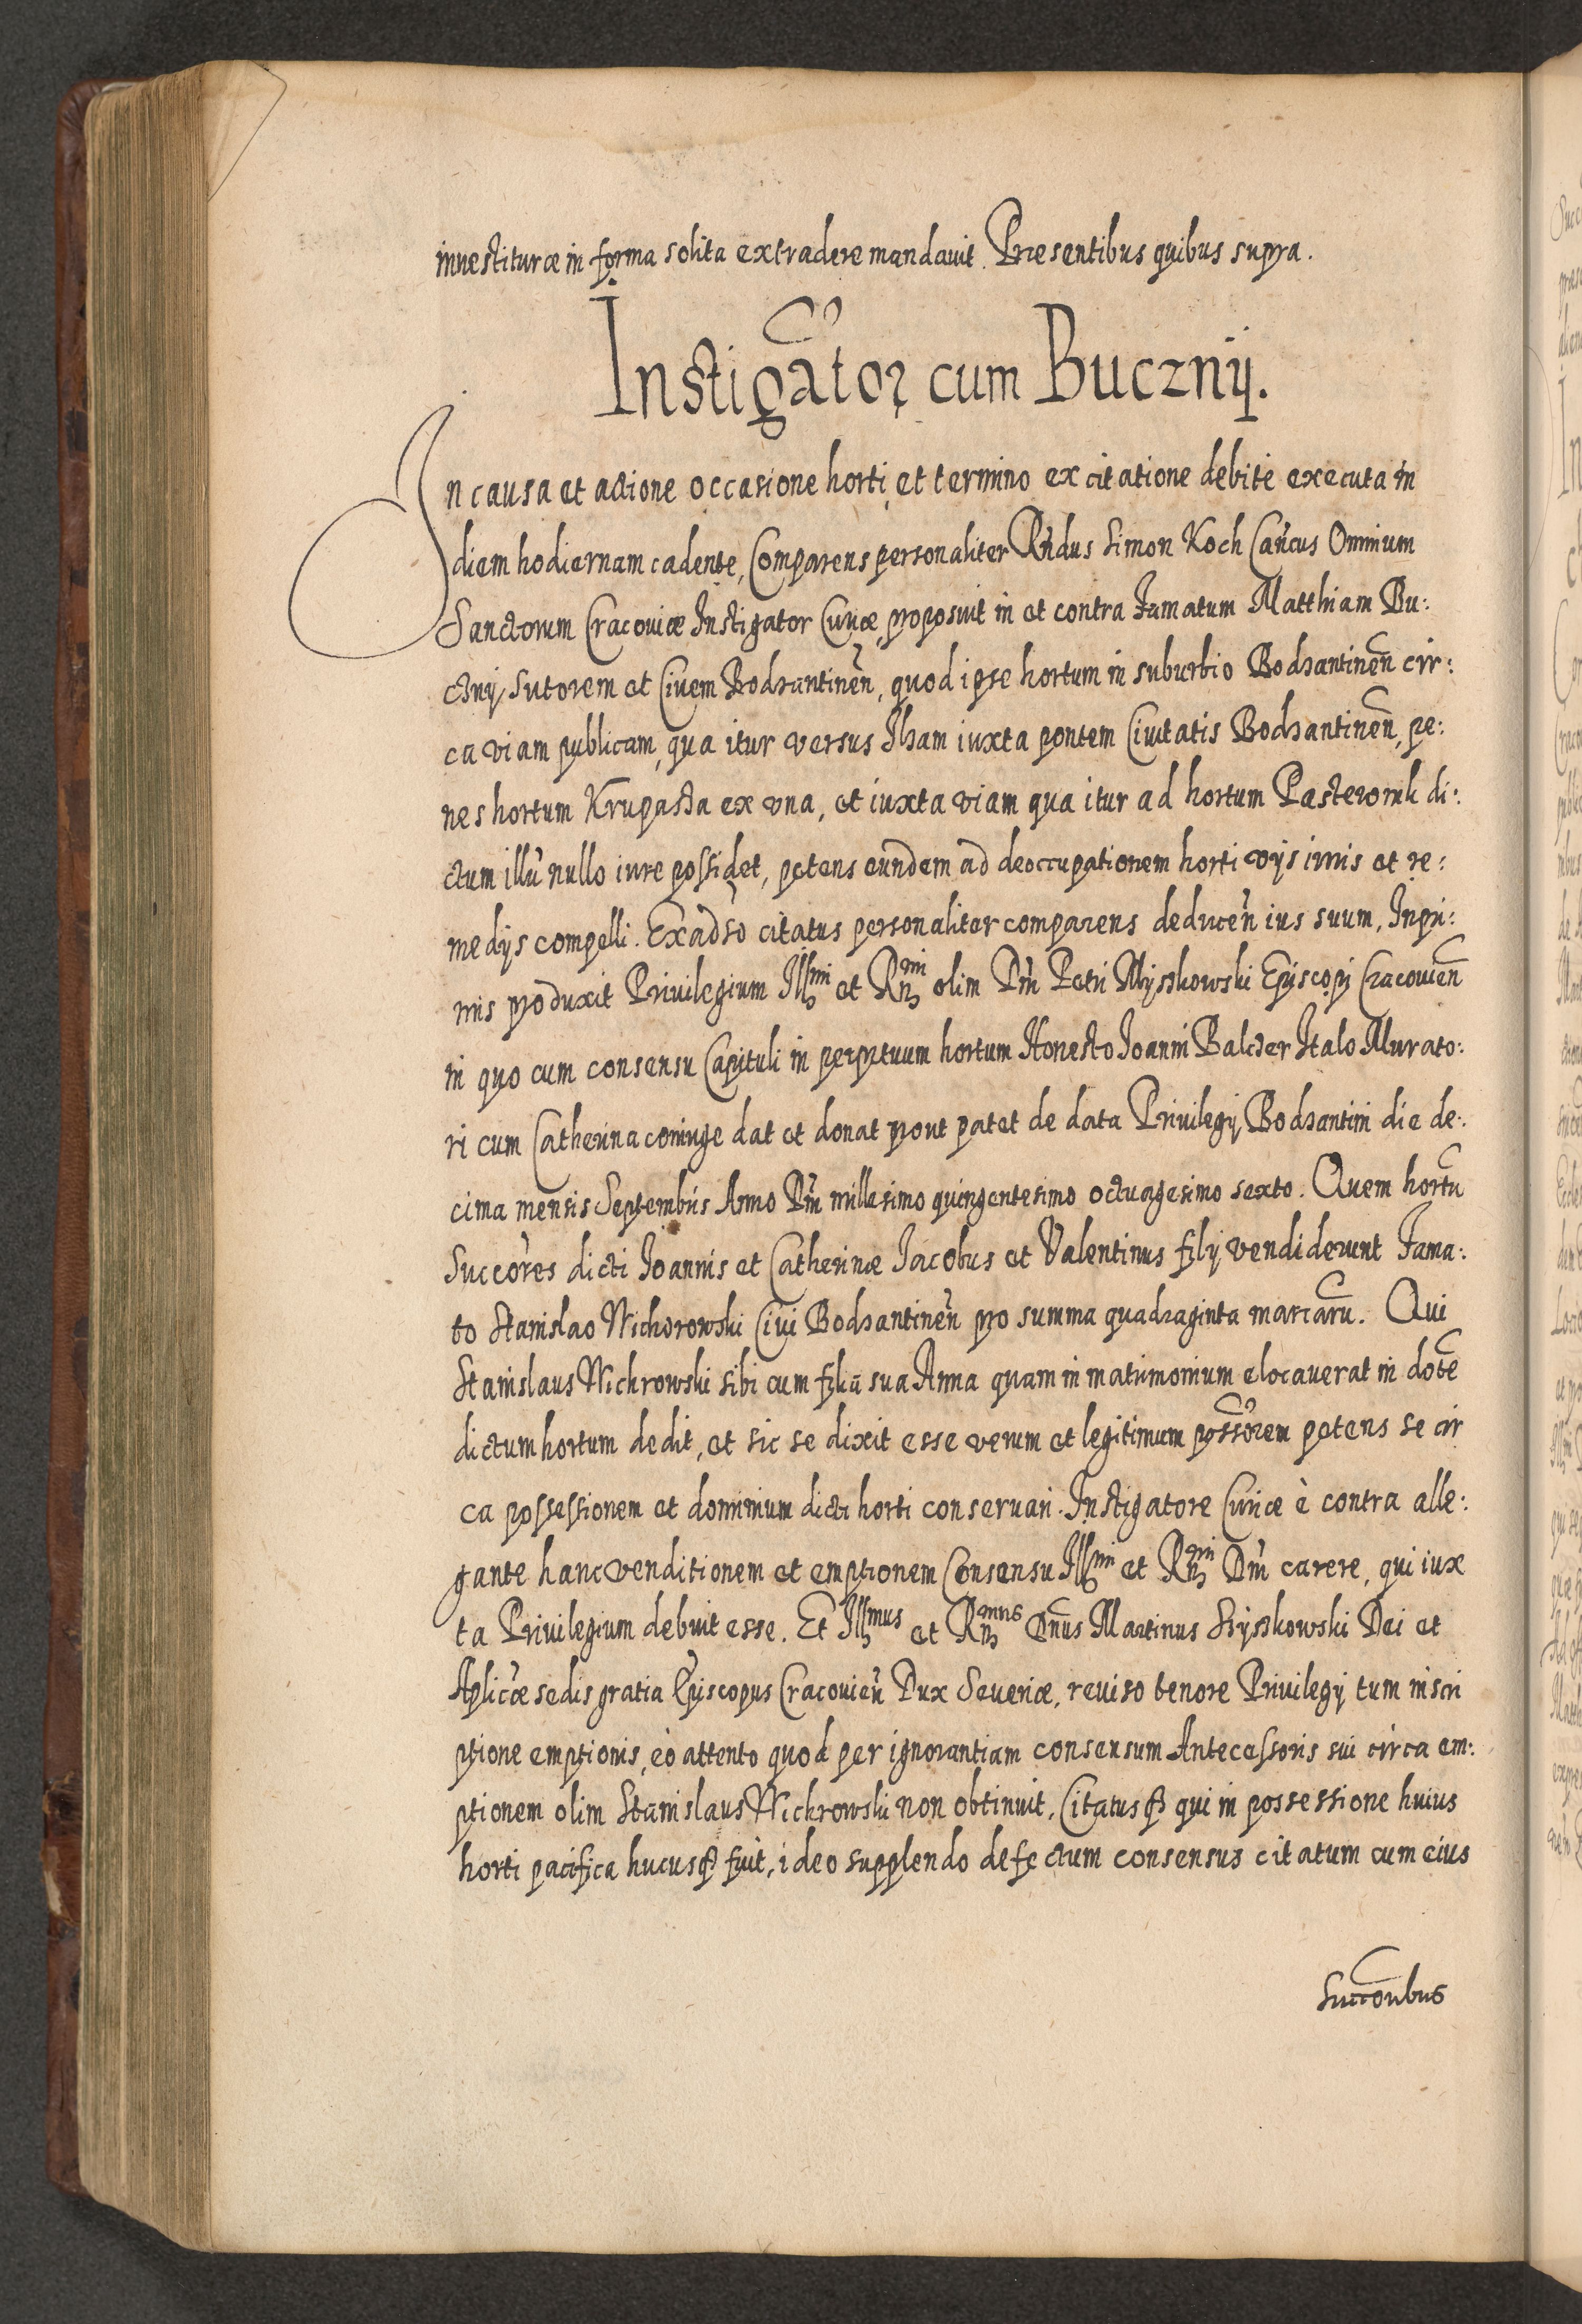 inuestituræ in forma solita extradere mandauit. Præsentibus quibus supra.
Instigãtor cum Bucznij.
In causa et actione occasione horti et termino ex citatione debite executa in
diem hodiernam cadente, Comparens personaliter Rñdus Simon Koch Cañcus Omnium
Sanctorum Cracouiæ Instigator Curiæ, proposuit in et contra Famatum Matthiam Bu:
cznij Sutorem et Ciuem Bodzantineñ, quod ipse hortum in suburbio Bodzantineñ cir:
ca viam publicam, qua itur versus Ilzam iuxta pontem Ciuitatis Bodzantineñ, pe:
nes hortum Krupasta ex vna, et iuxta viam qua itur ad hortum Pasterornk di:
ctum illũ nullo iure possidet, petens eundem ad deoccupationem horti vijs iuris et re:
medijs compelli. Ex adũso citatus personaliter comparens deduceñ ius suum, Inpri:
mis produxit Priuilegium Illmi et Rmi olim Dñi Petri Myszkowski Episcopi Cracouieñ
in quo cum consensu Capituli in perpetuum hortum Honesto Ioanni Balczer Italo Murato:
ri cum Catherina coniuge dat et donat prout patet de data Priuilegij Bodzantini die de:
cima mensis Septembris Anno Dñi millesimo quingentesimo octuagesimo sexto. Quem hortũ
Succores dicti Ioannis et Catherinæ Iacobus et Valentinus filij vendiderunt Fama:
to Stanislao Nichorowski Ciui Bodzantineñ pro summa quadraginta marcarũ. Qui
Stanislaus Nichrowski sibi cum filia sua Anna quam in matrimonium elocauerat in dotẽ
dictum hortum dedit, et sic se dixit esse verum et legitimum possõrem petens se cir
ca possessionem et dominium dicti horti conseruari. Instigatore Curiæ è contra alle:
gante hanc venditionem et emptionem Consensu Illmi et Rmi Dñi carere, qui iux
ta Priuilegium debuit esse. Et Illmus et Rmus Dñus Martinus Szyszkowski Dei et
Aplicæ sedis gratia Episcopus Cracouieñ Dux Seueriæ, reuiso tenore Priuilegij tum inscri
ptione emptionis, eò attento quod per ignorantiam consensum Antecessoris sui circa em:
ptionem olim Stanislaus Nichrowski non obtinuit, Citatusq̃ qui in possessione huius
horti pacifica hucusq̃ fuit, ideo supplendo defectum consensus citatum cum eius
Succoribus